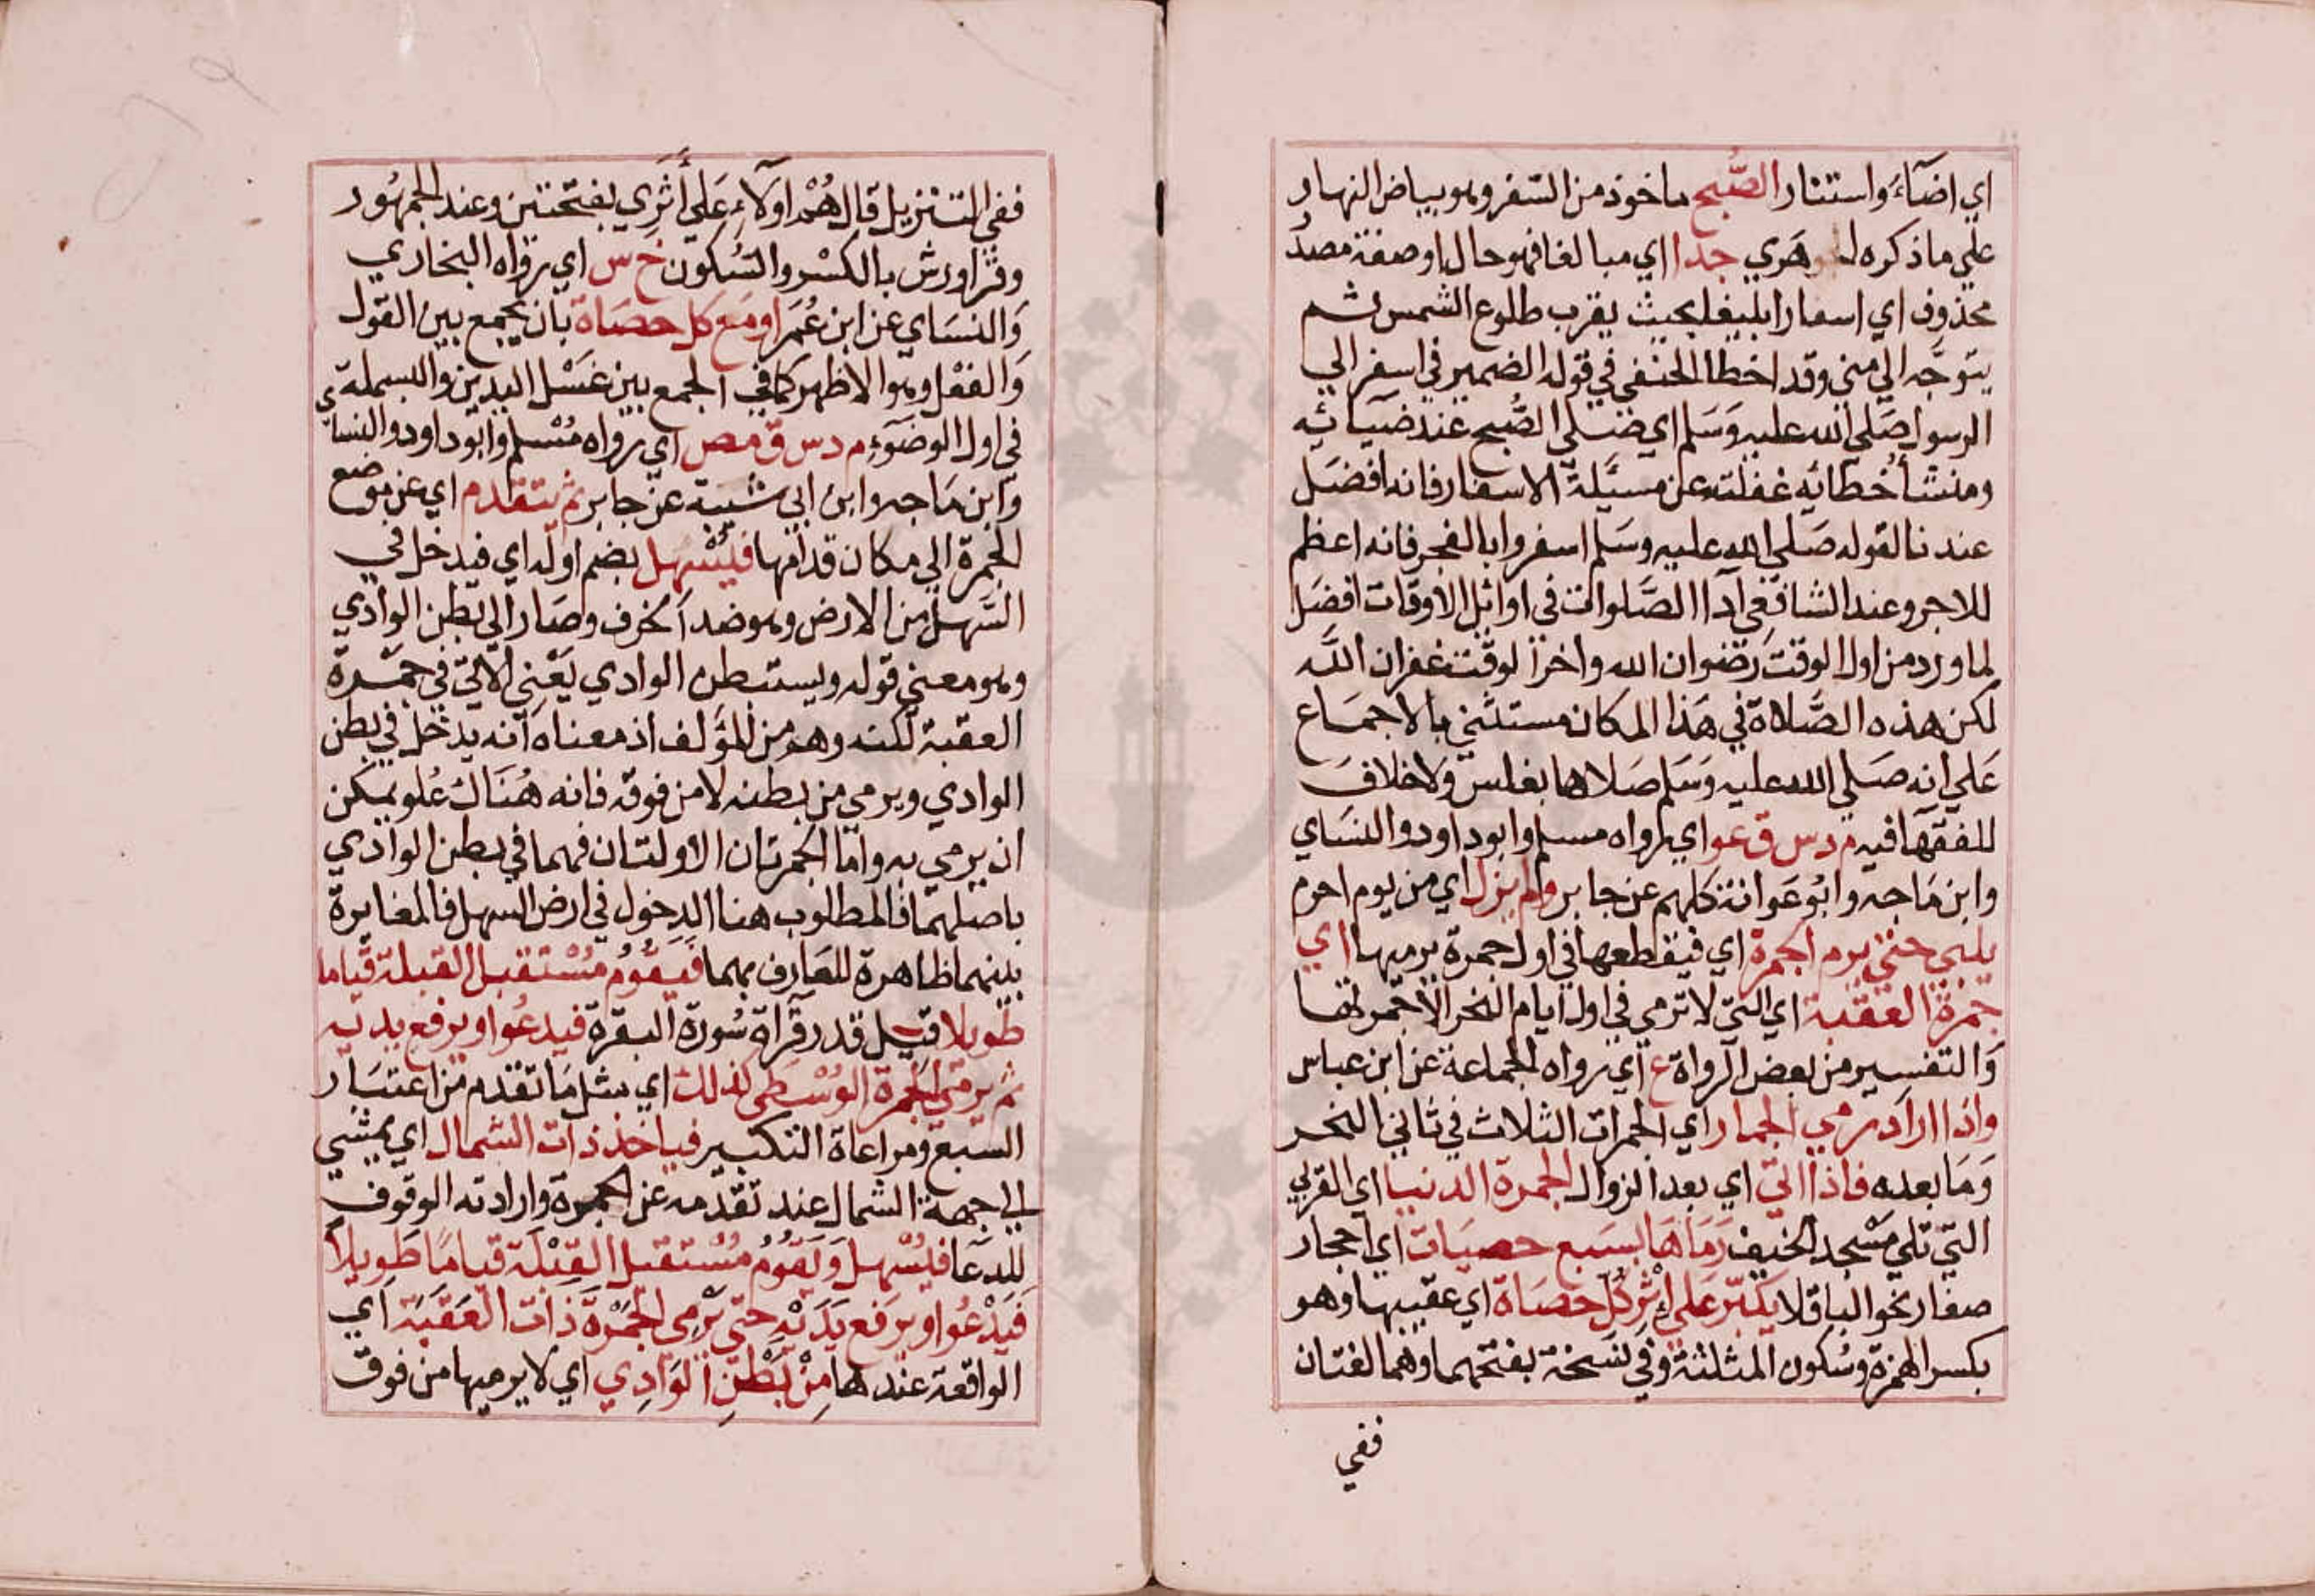 اي اضآء واستنار الصُّبح ماخوذ من السّفر وهو بياض النهار
علي ما ذكره الجوهري جدا اي مبالغا فهو حال او صفة مصدر
محذوف اي اسفارا بليغا بحيث يقرب طلوع الشمس ثم
يتوجّه الي مني وقد اخطا الحنفي في قوله الضمير في اسفر الي
الرسول صَلي الله عليه وَسَلم اي صَلي الصُّبح عند ضيائه
ومنشأ خُطائه غفلته عن مسئلة الاسفار فانه افضَل
عندنا لقوله صَلي الله عليه وسَلم اسفروا بالفجر فانه اعظم
للاجر وعند الشافعي آدا الصَّلوات في اوائل الاوقات افضَل
لما ورد من اول الوقت رضوان الله واخر الوقت غفران الله
لكن هذه الصَّلاة في هَذا المكان مستثني بالاجماع
عَلي انه صَلي الله عليه وَسَلم صَلاها بغلس ولاخلاف
للفقهآ فيه م د س ق عو اي رواه مسلم وابو داود والنسَاي
وابن مَاجه وابُو عَوانة كلهم عن جابر ولم يزل اي من يوم احرم
يلبي حتي يرم الجمرة اي فيقطعها في اول جمرة يرميها اي
جمرة العقبة اي التي لا ترمي في اول ايام النحر الا جمرتها
وَالتفسير من بعض الرواة ع اي رواه الجماعة عن ابن عباس
واذا اراد رمي الجمار اي الجمرات الثلاث في ثاني النحر
وَمَا بعده فاذا اتي اي بعد الزوال الجمرة الدنيا اي القربي
التي تلي مَسْجد الخيف رَمَاهَا بسَبع حصيات اي احجار
صغار نحو الباقلا يكبّر عَلي اِثْر كُلّ حصَاة اي عقيبها وهو
بكسر الهمزة وسُكون المثلثة وفي نسَخة بفتحهما وهما لغتان
ففي
ففي التنزيل قال هُمْ اولآءِ عَلي أَثَري بفتحتين وعند الجمهُور
وقرا ورش بالكسْر والسُكون خ س اي رواه البخاري
وَالنسَاي عن ابن عُمَر او مَع كل حصَاة بان يجمع بين القول
وَالفعْل وهو الاظهر كما في الجمع بين غسْل اليدين والبسملة
في اول الوضوء م د س ق مص اي رواه مُسْلم وابو داود والنساي
وابن مَاجه وابن ابي شيبة عن جابر ثم يتقدم اي عن موضع
الجمرة الي مكان قدامها فيُسْهل بضم اوله اي فيدخل في
السَّهل من الارض وهو ضد الحزف وصَار الي بطن الوادي
وهو معني قوله ويستبطن الوادي يَعْني الاتي في جمْرة
العقبة لكنه وهم من المؤلف اذ معناه انه يدخل في بطن
الوادي ويرمي من بطنه لا من فوقه فانه هُنَاك عُلو يمكن
ان يرمي به واما الجمرتان الاولتان فهما في بطن الوادي
باصلهما فالمطلوب هنا الدخول في ارض السهل فالمغايرة
بينهما ظاهرة للعَارف بهما فَيَقُومُ مُسْتقبل القبلة قيَاما
طويلا قيل قدر قرآة سُورة البقرة فيدعُو او يرفع يديه
ثم يرمي الجمرة الوُسْطَي كذلك اي مثل مَا تقدم من اعتبَار
السّبع ومراعاة التكبير فياخذ ذات الشمال اي يمشي
الي جهة الشمال عند تقدمه عن الجمرة وارادته الوقوف
للدعَا فيُسْهل وَيَقُومُ مُسْتقبل القِبْلَة قيامًا طَويلاً
فَيَدْعُو او يرفع يَدَيْهِ حتي يَرْمِي الجَمْرَةَ ذَات العَقَبَة اي
الواقعة عندها مِنْ بَطْنِ الوَادِي اي لا يرميها من فوق